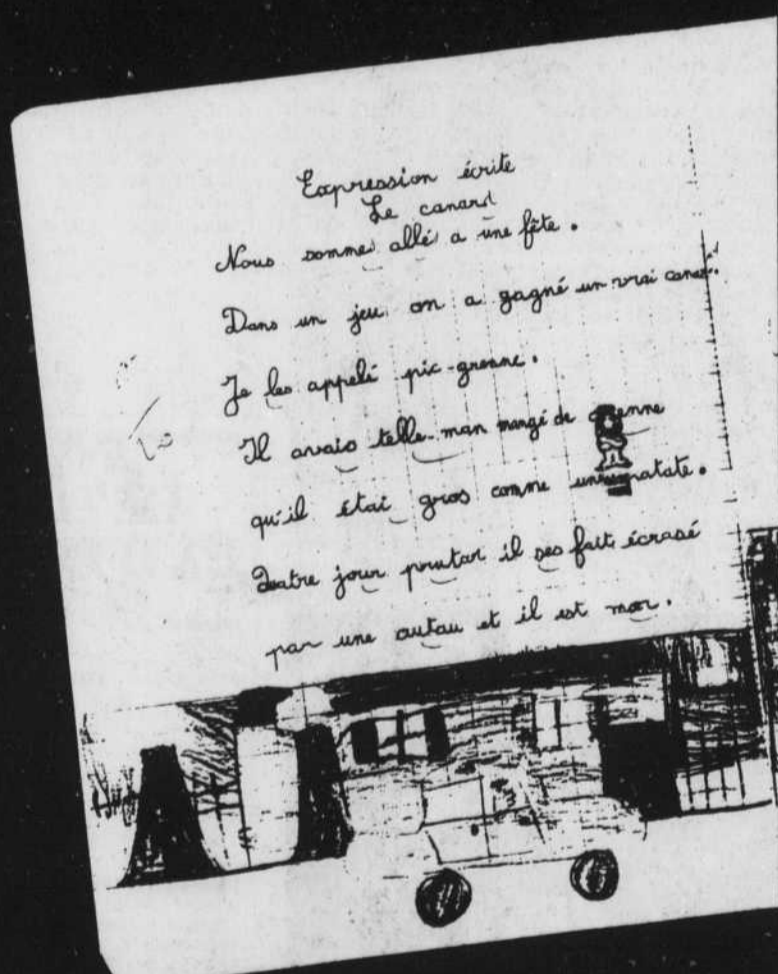 Expression écrite
Le canard
Nous somme allé a une fête.
Dans un jeu on a gagné un vrai canard.
Je les appelé pic-grenne.
Il avais telle-man mangé de grenne
qu'il étai gros comme une patate.
Quatre jour plutar il ses fait écrasé
par une autau et il est mor.